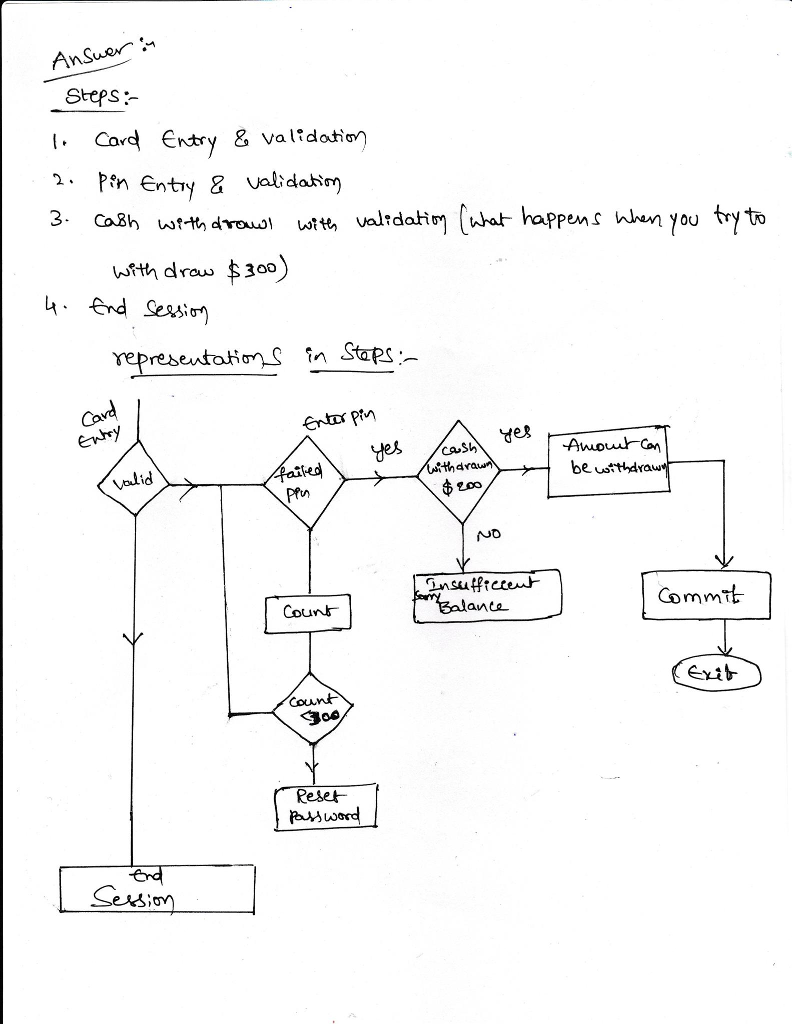 Answer :-
Steps:-
1. Card Entry & validation
2. Pin Entry & validation
3. cash withdrawl with validation (what happens when you try to
withdraw $300)
4. End Session
representations in Steps:-
Card
Entry
Enter pin
valid
failed
pin
yes
cash
withdrawn
$200
yes
Amount can
be withdrawn
NO
Insufficient
Sorry Balance
Commit
Exit
Count
Count
<300
Reset
Password
End
Session